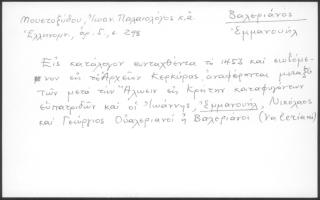 Μουστοξύδου, Ἰωαν. Παλαιολόγος κ.ἄ.
Βαλεριάνος
Ἑλληνομν., ἀρ. 5, σ. 298
Ἐμμανουήλ
Εἰς κατάλογον συνταχθέντα τῷ 1453 καὶ σωζόμε-
νον εἰς τὸ Ἀρχεῖον Κερκύρας ἀναφέρονται μεταξὺ
τῶν μετὰ τὴν Ἅλωσιν εἰς Κρήτην καταφυγόντων
εὐπατριδῶν καὶ οἱ Ἰωάννης, Ἐμμανουήλ, Νικόλαος
καὶ Γεώργιος Οὐαλεριανοί ἢ Βαλεριάνοι (Valeriani)